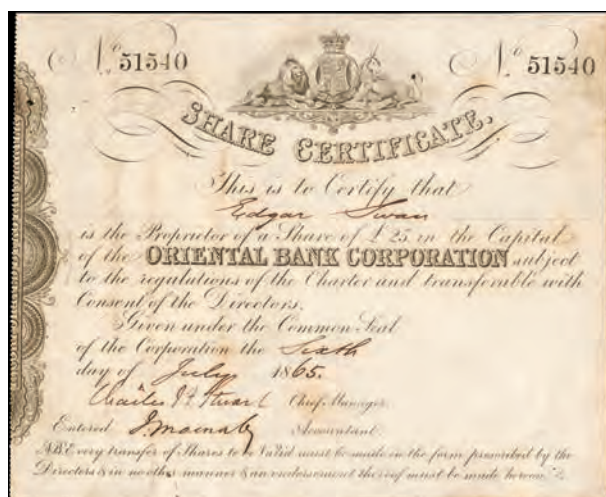 No. 51540 No. 51540
SHARE CERTIFICATE.
This is to Certify that
Edgar Swan
is the Proprietor of a Share of £25 in the Capital
of the ORIENTAL BANK CORPORATION subject
to the regulations of the Charter and transferable with
Consent of the Directors.
Given under the Common Seal
of the Corporation the Sixth
day of July 1865.
Charles J F Stuart Chief Manager.
Entered Accountant.
N.B. Every transfer of Shares to be Valid must be made in the form prescribed by the
Directors & in no other manner & an endorsement thereof must be made hereon.